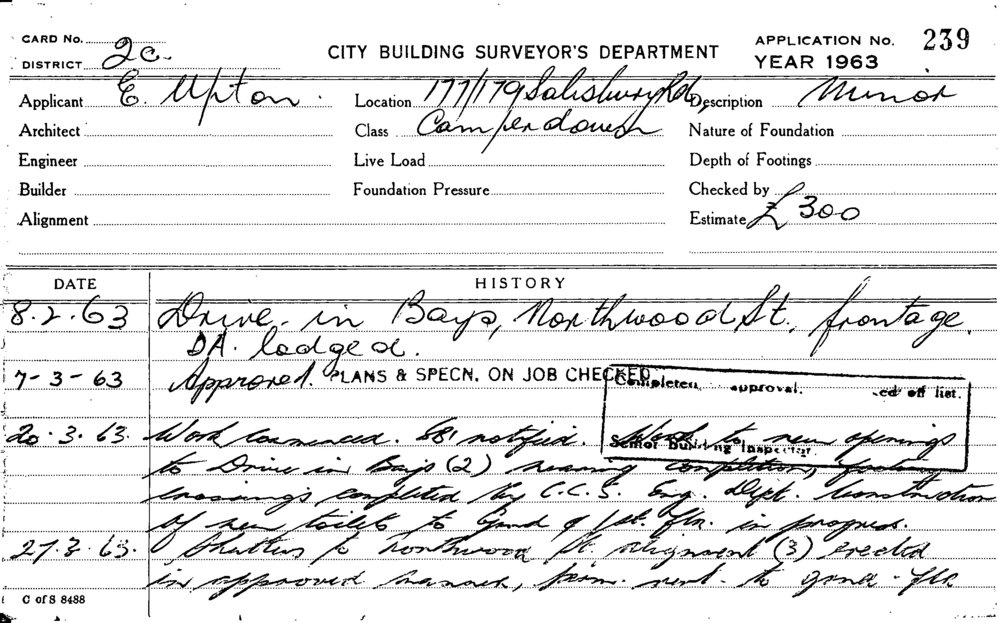 CARD No.
DISTRICT 2c.
CITY BUILDING SURVEYOR'S DEPARTMENT
APPLICATION No. 239
YEAR 1963
Applicant E. Upton.
Location 177/179 Salisbury Rd,
Description Minor
Architect
Class Camperdown
Nature of Foundation
Engineer
Live Load
Depth of Footings
Builder
Foundation Pressure
Checked by
Alignment
Estimate £300
DATE
HISTORY
8.2.63 Drive-in Bays, Northwood St., frontage.
DA. lodged.
7-3-63 Approved. PLANS & SPECN. ON JOB CHECKED
Completed approval. off list.
Senior Building Inspector.
20.3.63. Work commenced. notified. Work to new openings
to Drive in Bays (2) nearing completion, footway
crossings completed by C.C.S. Eng. Dept. Construction
of new toilets to Grnd & 1st. flr. in progress.
27.3.63. Shutters to Northwood St. alignment (3) erected
in approved manner, perm. vent. to grnd. flr
C of S 8488